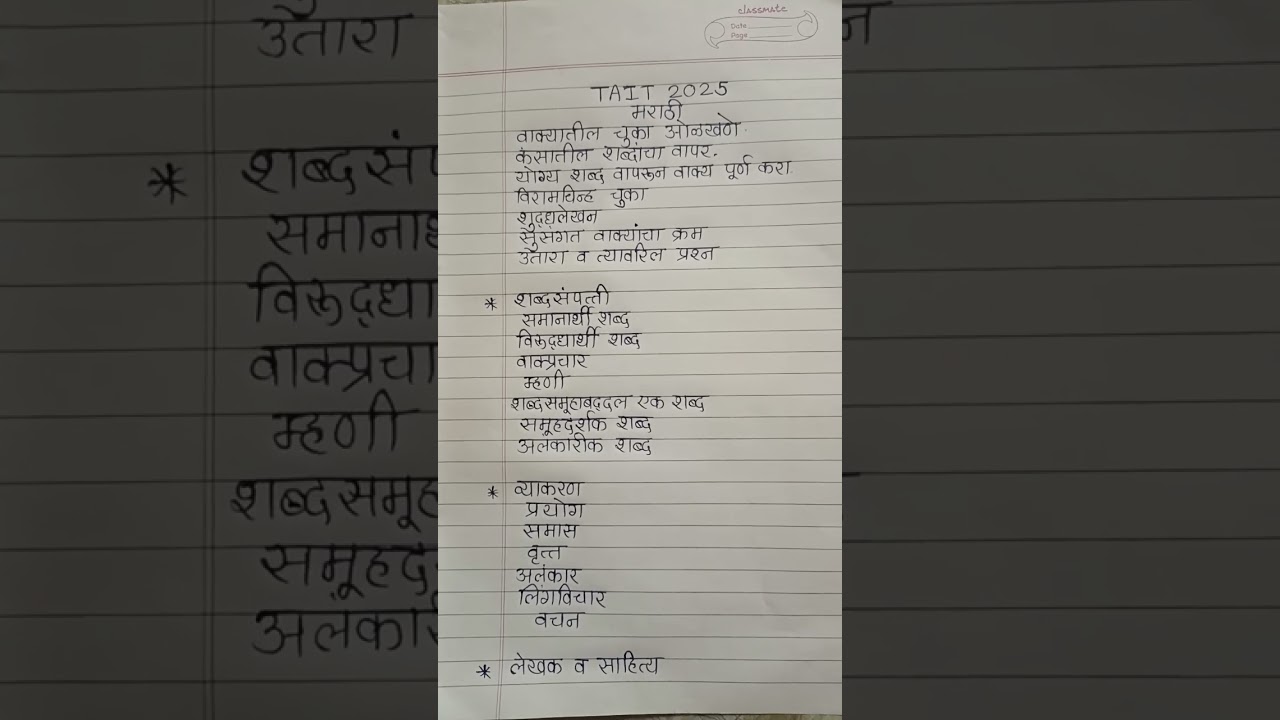 classmate
Date
Page
TAIT 2025
मराठी
वाक्यातील चुका ओळखणे.
कंसातील शब्दांचा वापर.
योग्य शब्द वापरून वाक्य पूर्ण करा.
विरामचिन्ह चुका
शुद्धलेखन
सुसंगत वाक्यांचा क्रम
उतारा व त्यावरिल प्रश्न
* शब्दसंपत्ती
समानार्थी शब्द
विरूद्धार्थी शब्द
वाक्प्रचार
म्हणी
शब्दसमूहाबद्दल एक शब्द
समूहदर्शक शब्द
अलंकारीक शब्द
* व्याकरण
प्रयोग
समास
वृत्त
अलंकार
लिंगविचार
वचन
* लेखक व साहित्य